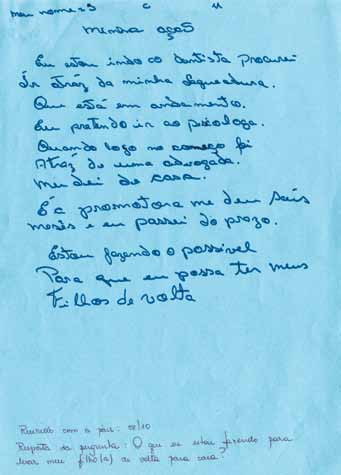 meu nome é
minha ação
Eu estou indo co dentista procurei
Ir atráz da minha laqueadura.
Que está em andamento.
Eu pretendo ir ao psicologa.
Quando logo no começo fui
Atráz de uma advogada.
Mudei de casa.
E a promotora me deu Seis
meses e eu passei do prazo.
Estou fazendo o possível
Para que eu possa ter meus
Filhos de volta
Reunião com os pais: 08/10
Resposta da pergunta: O que eu estou fazendo para
levar meu filho(a) de volta para casa?